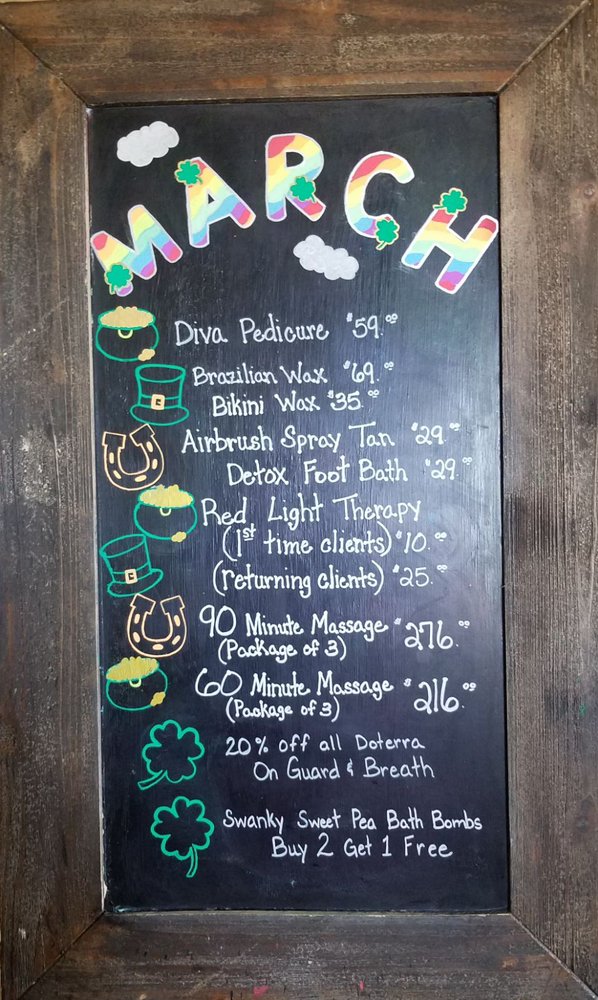 MARCH
Diva Pedicure $59.00
Brazilian Wax $69.00
Bikini Wax $35.00
Airbrush Spray Tan $29.00
Detox Foot Bath $29.00
Red Light Therapy
(1st time clients) $10.00
(returning clients) $25.00
90 Minute Massage $276.00
(Package of 3)
60 Minute Massage $216.00
(Package of 3)
20% off all Doterra
On Guard & Breath
Swanky Sweet Pea Bath Bombs
Buy 2 Get 1 Free